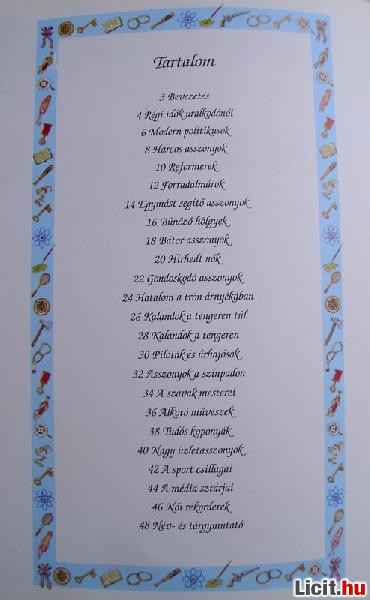 Tartalom
3 Bevezetés
4 Régi idők uralkodónői
6 Modern politikusok
8 Harcos asszonyok
10 Reformerek
12 Forradalmárok
14 Egymást segítő asszonyok
16 Bűnöző hölgyek
18 Bátor asszonyok
20 Hírhedt nők
22 Gondoskodó asszonyok
24 Hatalom a trón árnyékában
26 Kalandok a tengeren túl
28 Kalandok a tengeren
30 Pilóták és űrhajósok
32 Asszonyok a színpadon
34 A szavak mesterei
36 Alkotó művészek
38 Tudós koponyák
40 Nagy üzletasszonyok
42 A sport csillagai
44 A média sztárjai
46 Női rekorderek
48 Név- és tárgymutató
Licit.hu